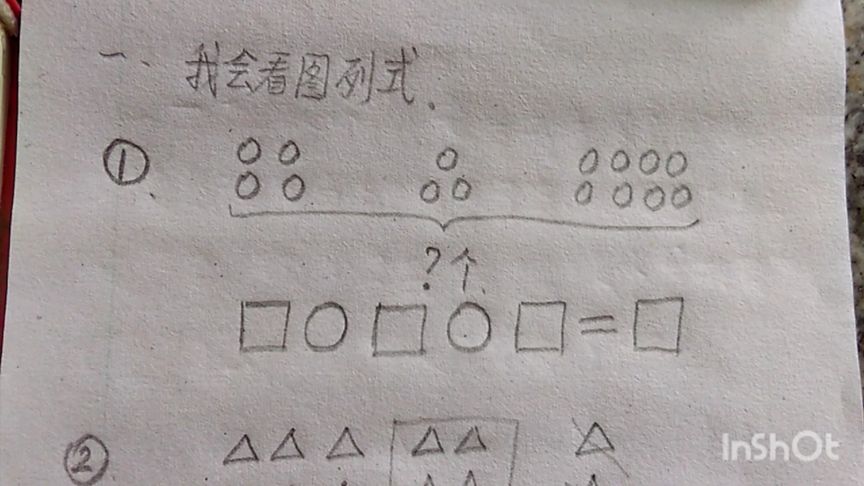 一、我会看图列式.
①
?个
=
②
InShOt